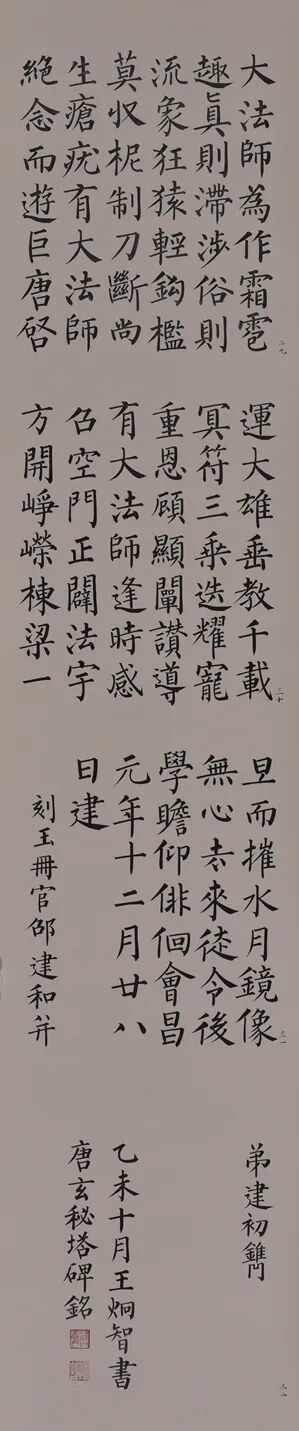 大法師為作霜雹
二九
趣眞則滯涉俗則
流象狂猿輕鈎檻
莫収柅制刀斷尚
生瘡疣有大法師
絶念而遊巨唐啓
運大雄垂教千載
三十
冥符三乘迭耀寵
重恩顧顯闡讚導
有大法師逢時感
召空門正闢法宇
方開崢嶸棟梁一
旦而摧水月鏡像
三一
無心去來徒令後
學瞻仰俳佪會昌
元年十二月廿八
日建
刻玉冊官邵建和并
弟建初鐫
三二
乙未十月王炯智書
唐玄秘塔碑銘